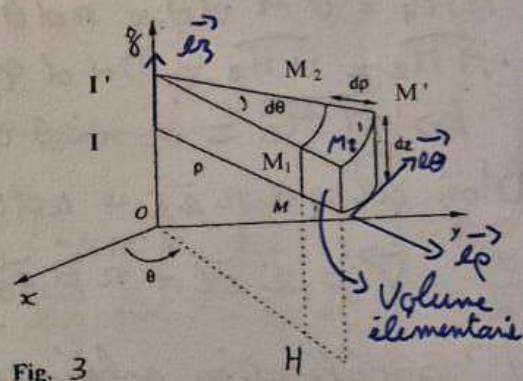 z
e⃗z
I'
M₂
dρ
M'
dθ
M₂'
dz
I
M₁
e⃗θ
ρ
M
O
y
e⃗ρ
θ
x
Volume
élementaire
H
Fig. 3